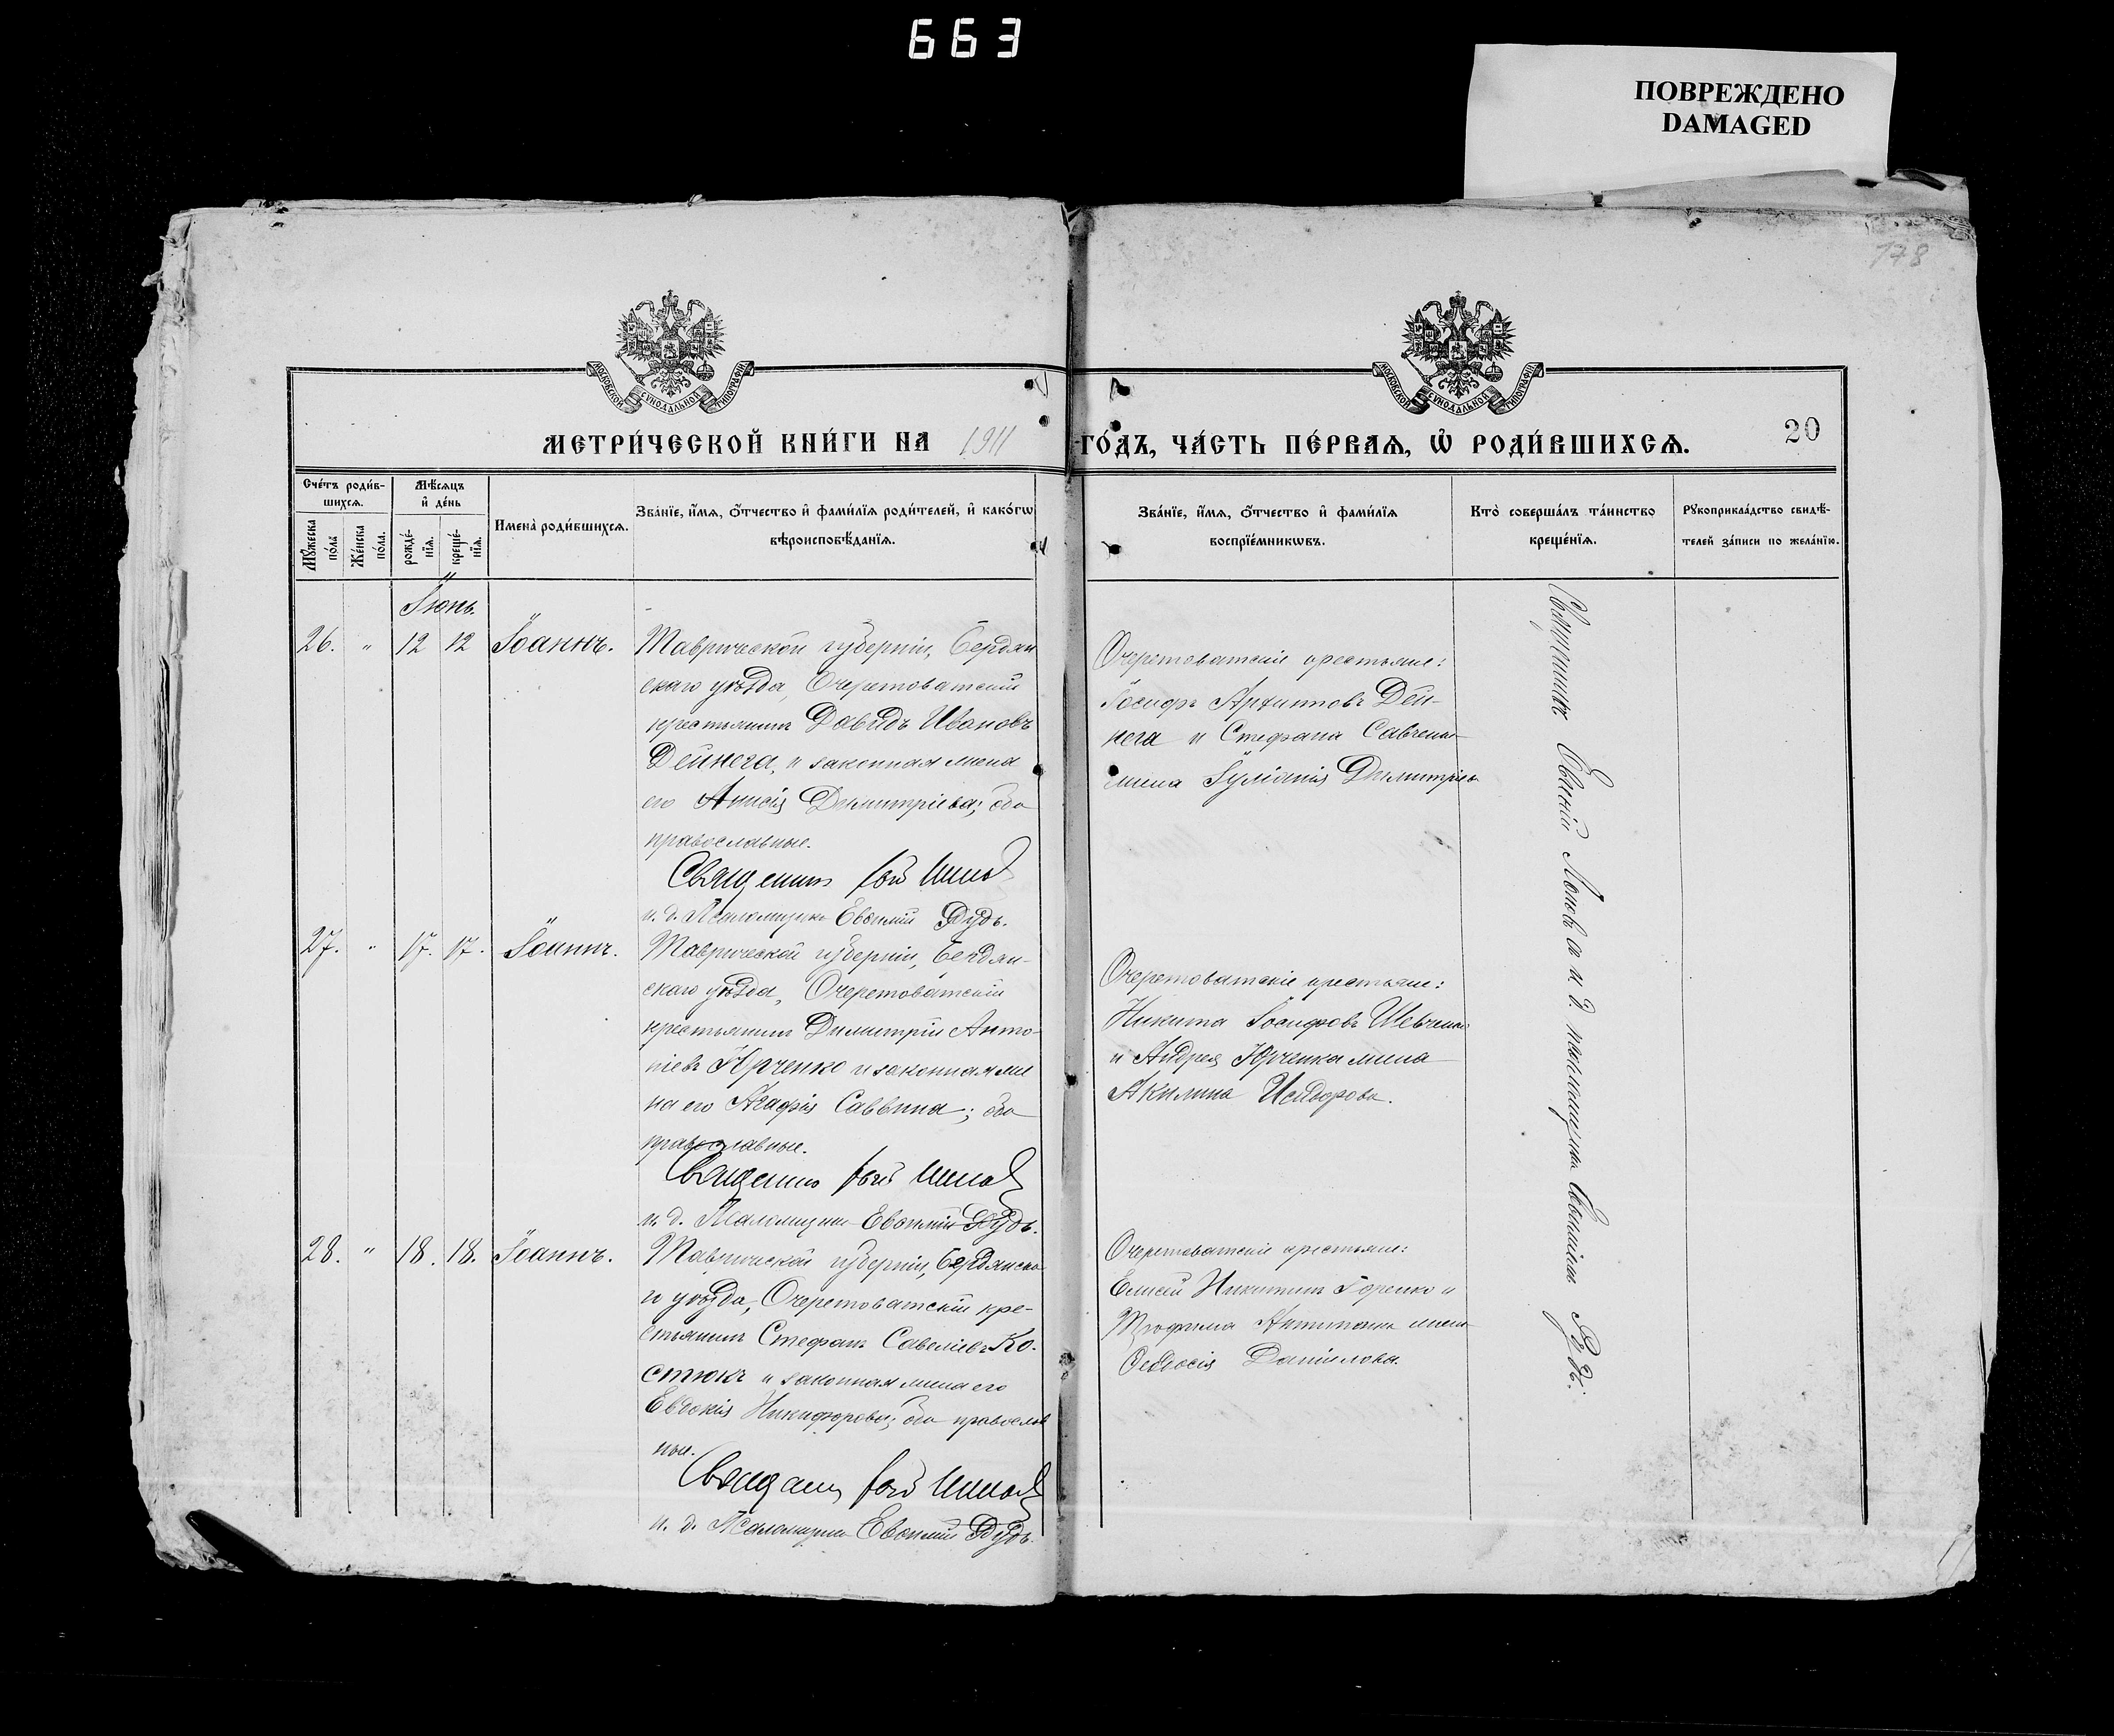 663
ПОВРЕЖДЕНО
DAMAGED
178
МОСКОВСКОЙ СУНОДАЛЬНОЙ ТИПОГРАФІИ
МОСКОВСКОЙ СУНОДАЛЬНОЙ ТИПОГРАФІИ
МЕТРИ́ЧЕСКОЙ КНИ́ГИ НА 1911 ГО́ДЪ, ЧА́СТЬ ПЕ́РВАѦ, Ѡ҆ РОДИ́ВШИХСѦ.
20
Сче́тъ роди́в-
шихсѧ.
Мꙋ́жеска
по́ла
Же́нска
по́ла.
Мѣ́сѧцъ
и҆ де́нь
рожде́-
нїѧ.
креще́-
нїѧ.
И҆мена̀ роди́вшихсѧ.
Зва́нїе, и҆́мѧ, ѻ҆́тчество и҆ фами́лїѧ роди́телей, и҆ како́гѡ
вѣроисповѣ́данїѧ.
Зва́нїе, и҆́мѧ, ѻ҆́тчество и҆ фами́лїѧ
воспрїе́мникѡвъ.
Кто̀ соверша́лъ та́инство
креще́нїѧ.
Рꙋкоприкла́дство свидѣ́-
телей за́писи по жела́нїю.
Іюнь.
26. " 12 12 Іоаннъ.
Таврической губерніи, Бердян
скаго уѣзда, Очеретоватскій
крестьянинъ Давидъ Ивановъ
Дейнега, и законная жена
его Димитріева; оба
православные.
Священникъ
и. д. Псаломщика Евѳимій Дудъ.
Очеретоватскіе крестьяне:
Іосифъ Архиповъ Дей-
нега и Стефана Савченка
жена Іуліанія Димитріева
27. " 17. 17. Іоаннъ.
Таврической губерніи, Бердян-
скаго уѣзда, Очеретоватскій
крестьянинъ Димитрій Анто-
ніевъ Юрченко и законная же
на его Агафія Саввина; оба
православные.
Священникъ
и. д. Псаломщика Евѳимій Дудъ.
Очеретоватскіе крестьяне:
Никита Іосифовъ Шевченко
и Андрея Юрченка жена
Акилина Исидорова.
28. " 18. 18. Іоаннъ.
Таврической губерніи, Бердянска
го уѣзда, Очеретоватскій кре-
стьянинъ Стефанъ Савеліевъ Ко-
стюкъ и законная жена его
Евдокія Никифорова; оба православ
ные.
Священникъ
и. д. Псаломщика Евѳимій Дудъ.
Очеретоватскіе крестьяне:
Елисей Никитинъ Горенко и
Трофима жена
Ѳеодосія Даніилова.
Священникъ и. д. псаломщика Евѳимій Дудъ.